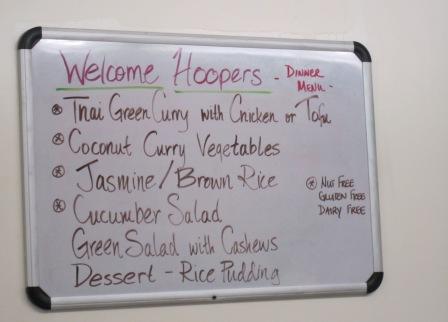 Welcome Hoopers - Dinner Menu -
⊛ Thai Green Curry with Chicken or Tofu
⊛ Coconut Curry Vegetables
⊛ Jasmine/Brown Rice
⊛ Cucumber Salad
Green Salad with Cashews
Dessert - Rice Pudding
⊛ Nut Free
Gluten Free
Dairy Free